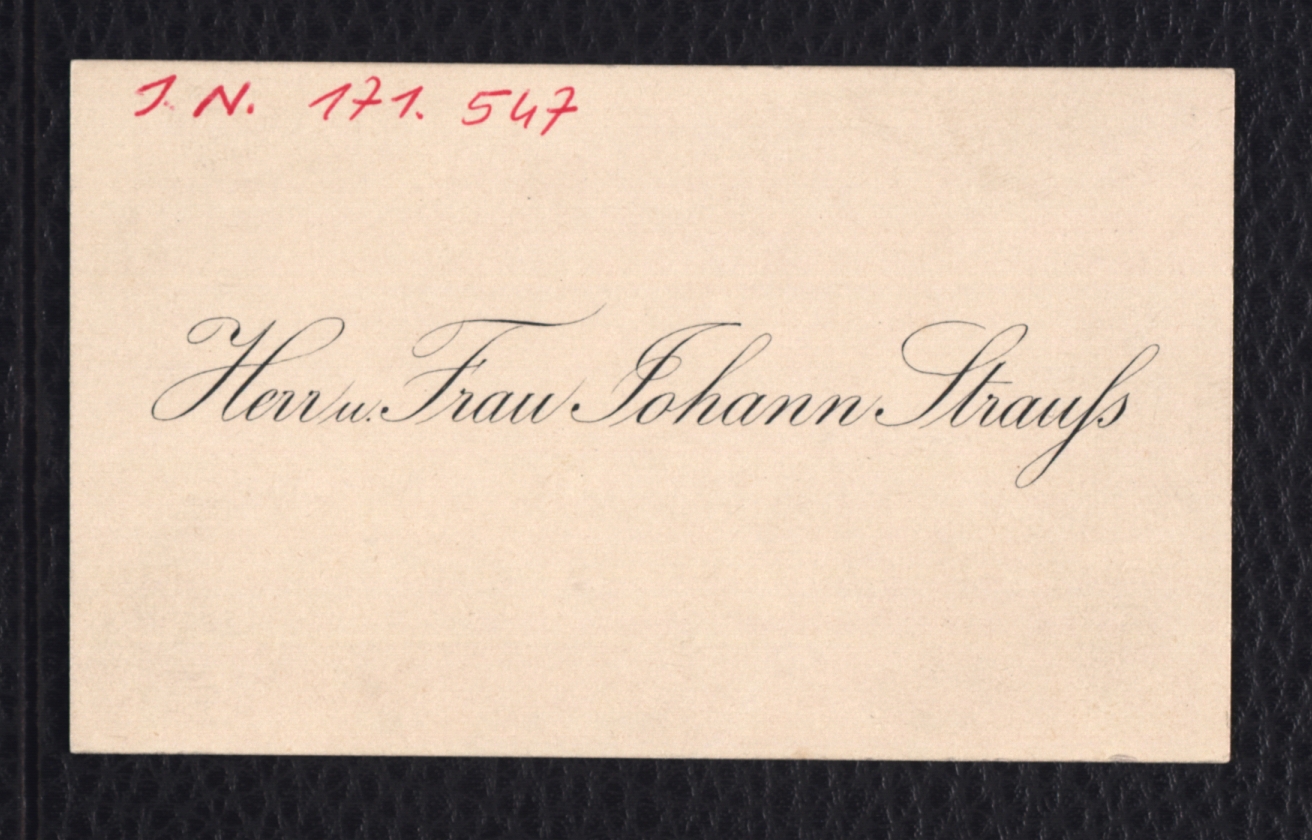 J. N. 171. 547
Herr u. Frau Johann Strauſs